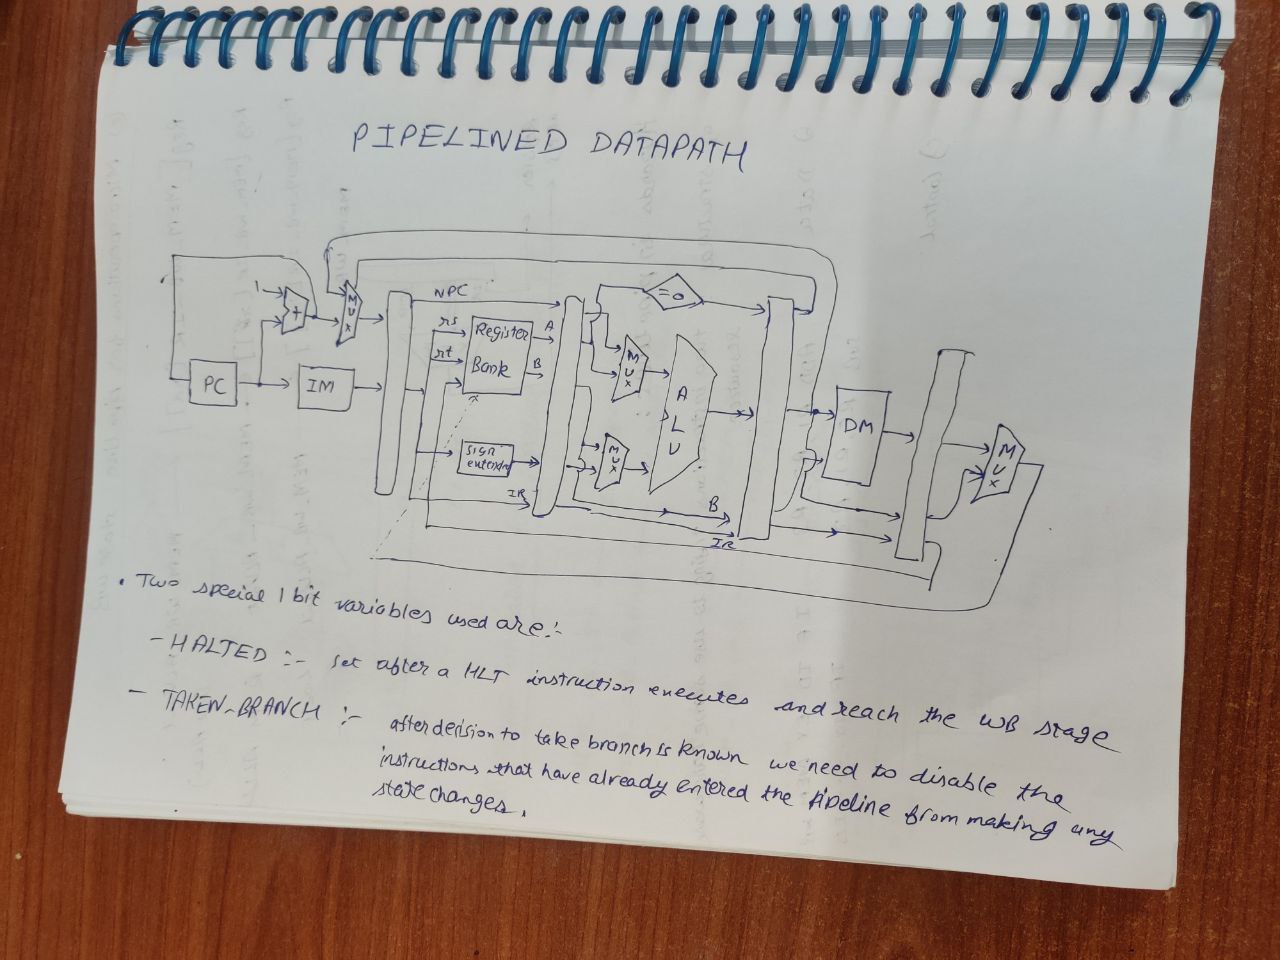 PIPELINED DATAPATH
1
+
MUX
NPC
rs
rt
Register
Bank
A
B
=0
MUX
ALU
PC
IM
DM
MUX
sign
MUX
IR
B
IR
• Two special 1 bit variables used are:-
- HALTED :- set after a HLT instruction executes and reach the WB stage
- TAKEN_BRANCH :- after decision to take branch is known we need to disable the
instructions that have already entered the pipeline from making any
state changes.